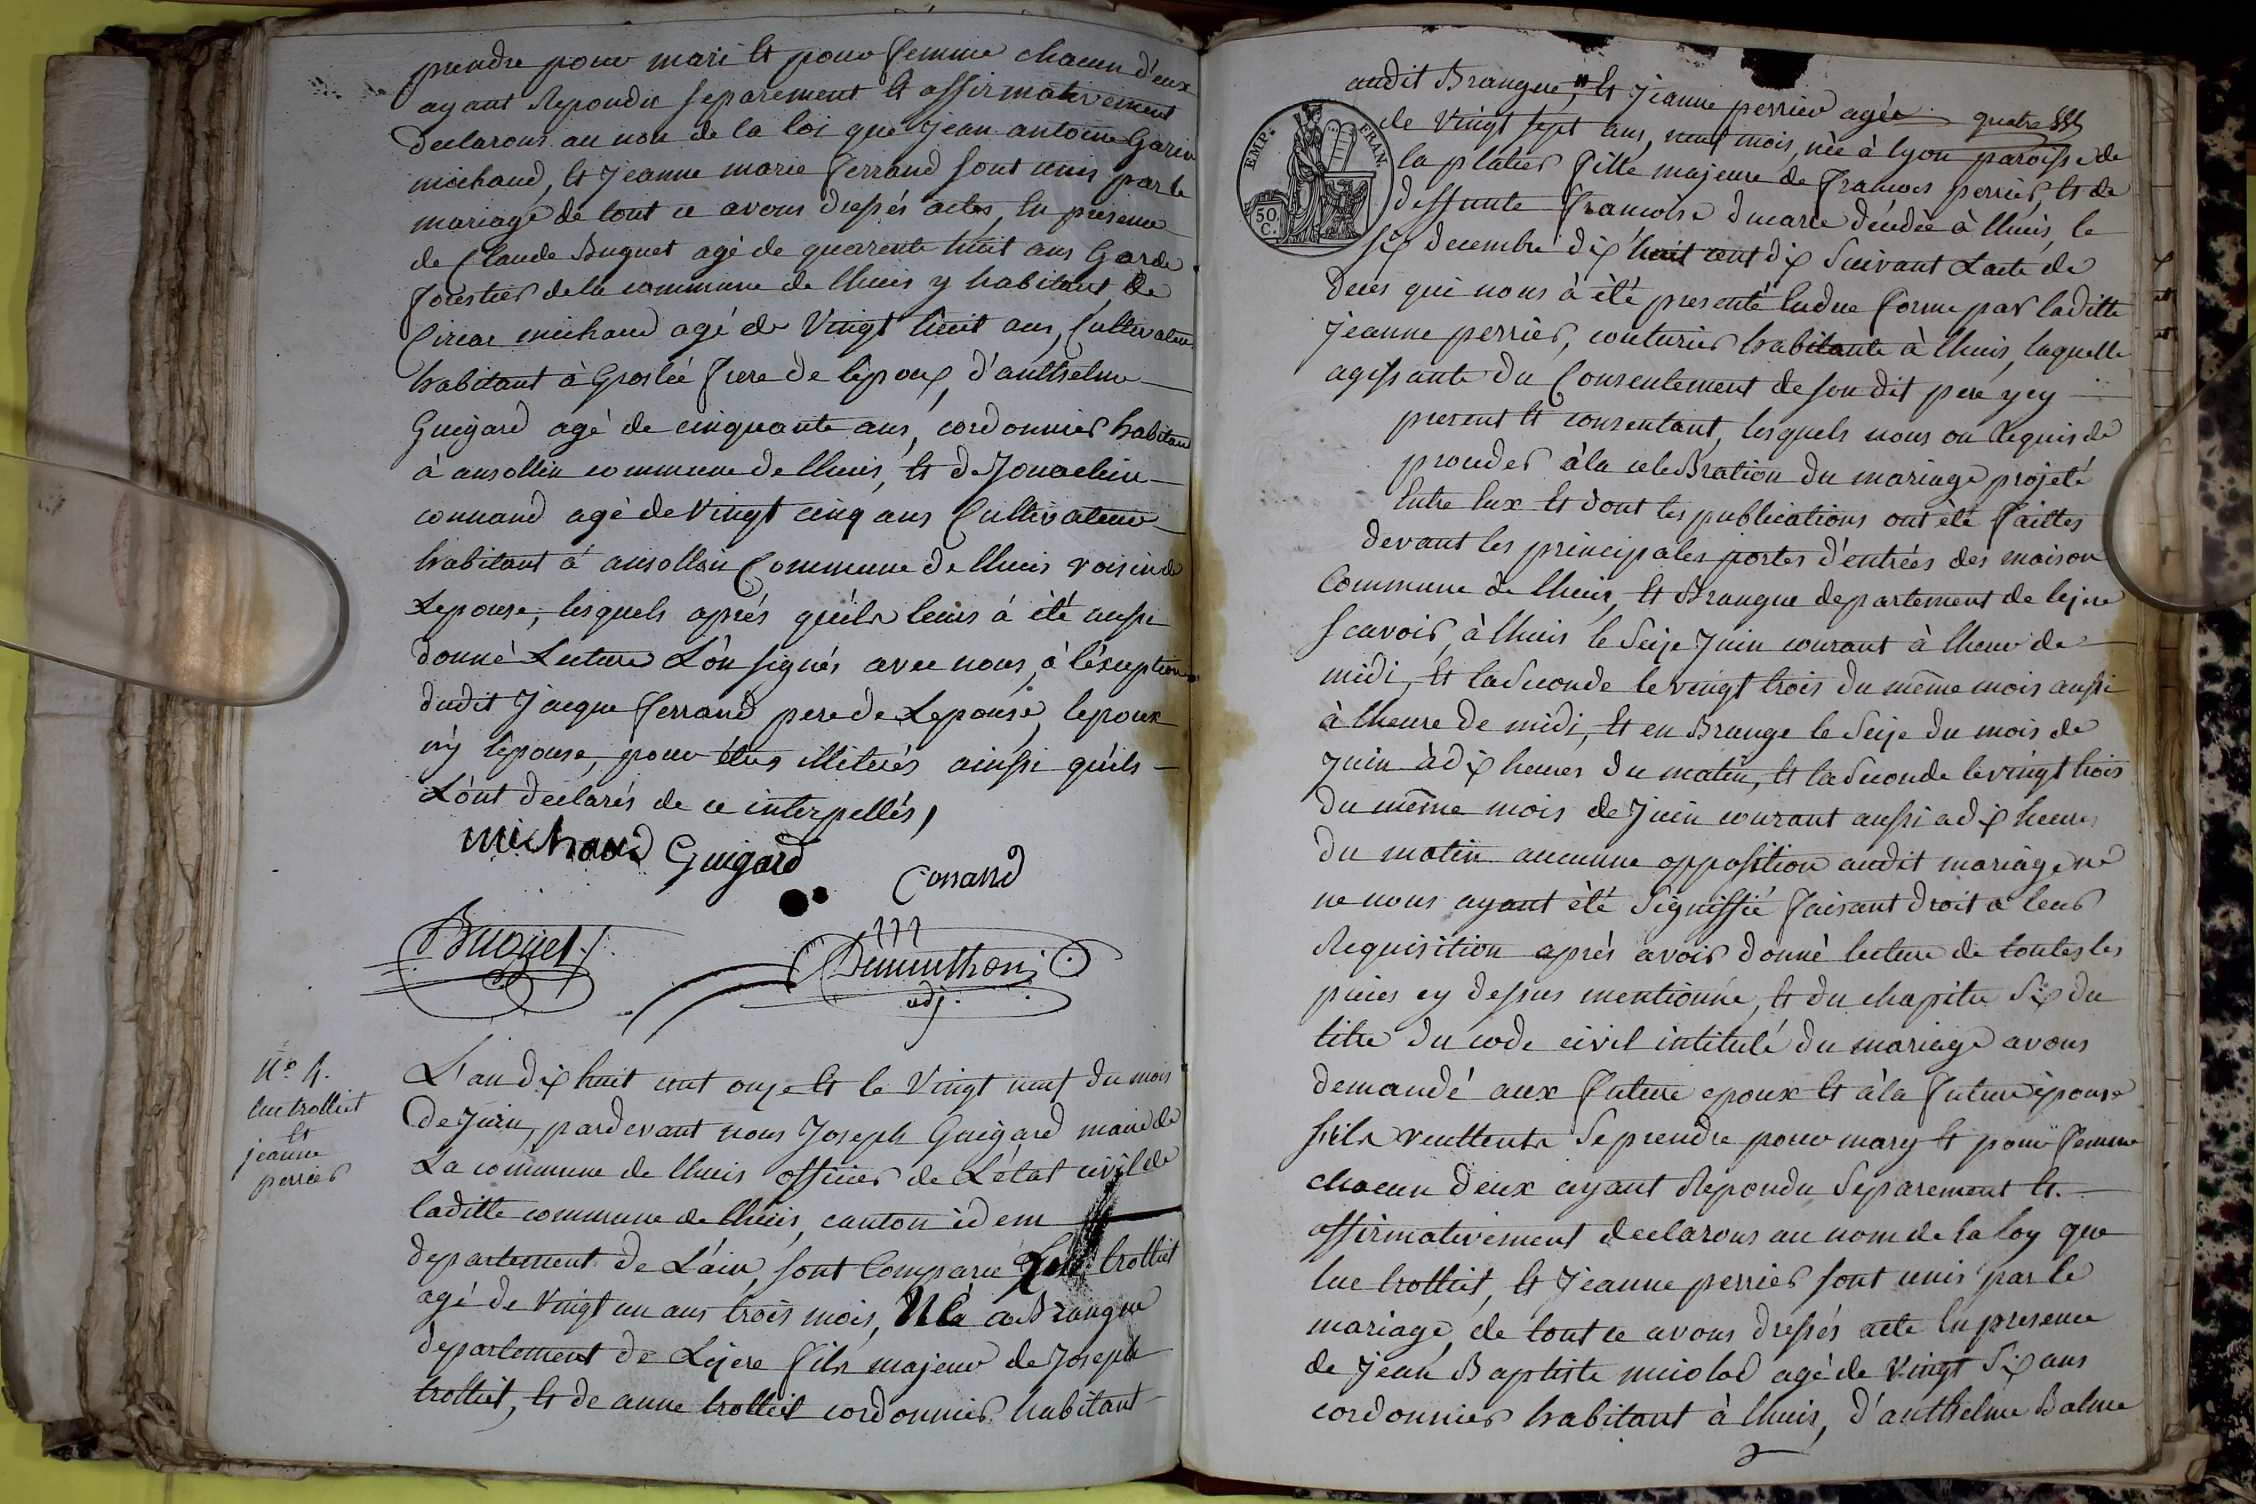 prendre pour mari et pour femme chacun d'eux
ayant Repondu separement et affirmativement
declarons au non de la loi que Jean antoine Garin
michaud, et Jeanne marie ferrand sont unis par le
mariage de tout ce avons dressés actes, En presence
de Claude Buguet agé de quarente huit ans Garde
forestier de la commune de lhuis y habitant, de
michaud agé de Vingt huit ans, Cultivateur
habitant à Groslée frere de lépoux, d'anthelme
Guigard agé de cinquante ans, cordonnier habitant
à ansollin commune de lhuis, et de Jouachin
connand agé de Vingt cinq ans Cultivateur
habitant à ansollin Commune de lhuis voisin de
Lepouse, lesquels aprés qu'il leurs à été aussi
donné Lecture L'on signés avec nous, à l'éxception
dudit Jacque ferrand pere de Lepouse, lepoux
n'y lépouse, pour étres illiterés ainssi quils
L'ont declarés de ce interpellés,
michaud Guigard
Conand
Buguet
Dumnthon
adj.
N° 4.
luc trolliet
et
jeanne
perrier
L'an dix huit cent onze et le Vingt neuf du mois
de Juin, pardevant nous Joseph Guigard maire de
La commune de lhuis officier de L'état civil de
laditte commune de lhuis, canton idem
departement de L'ain, sont Comparu Luc trolliet
agé de Vingt un ans trois mois, Né a Brangue
departement de Lizere fils majeur de Joseph
trolliet, et de anne trolliet cordonnier habitant
EMP. FRAN.
50.
C.
audit Brangue, et Jeanne perrier agée quatre
de Vingt sept ans, neuf mois, née à lyon paroisse de
la platier fille majeure de francois perrier, et de
deffunte francoise ducarre décédée à lhuis, le
six decembre dix huit cent dix Suivant Lacte de
deces qui nous à été presenté Endue forme par laditte
jeanne perrier, couturier habitante à lhuis, laquelle
agissante du Consentement de son dit pere ycy
present et consentant, lesquels nous on Requis de
proceder à la celebration du mariage projeté
Entre Eux et dont les publications ont été faittes
devant les principales portes d'entrées des maison
Commune de lhuis, et Brangue departement de lizere
scavoir, à lhuis le Seize Juin courant à lheure de
midi, et la Seconde le vingt trois du même mois aussi
à lheure de midi, et en Brange le Seize du mois de
Juin à dix heures du matin, et la Seconde le vingt trois
du même mois de Juin courant aussi a dix heures
du matin aucunne opposition audit mariage ne
ne nous ayant été Signiffié faisant droit a leur
Requisition aprés avoir donné lecture de toutes les
pieces cy dessus mentionné, et du chapitre Six du
titre du code civil intitulé du mariage avons
demandé aux future epoux et à la future épouse
s'ils veullente Se prendre pour mary et pour femme
chacun deux ayant Repondu Separement et
affirmativement declarons au nom de la loy que
luc trolliet, et Jeanne perrier sont unis par le
mariage, de tout ce avons dressés acte En presence
de Jean Baptiste agé de Vingt Six ans
cordonnier habitant à lhuis, d'anthelme Balme